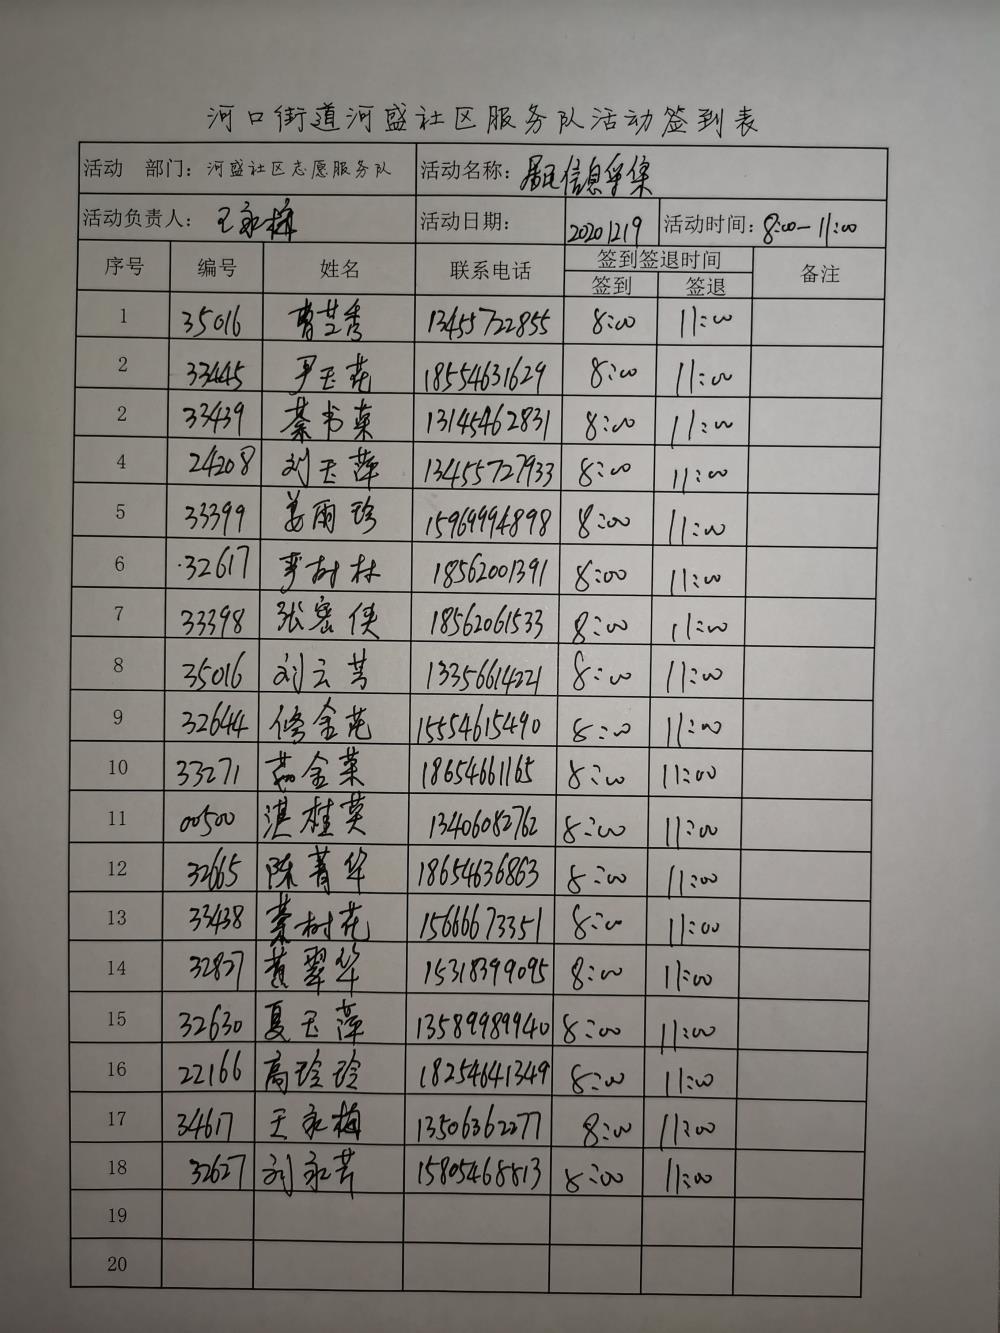 河口街道河盛社区服务队活动签到表
活动 部门：河盛社区志愿服务队 活动名称：居民信息采集
活动负责人：王永梅 活动日期： 20201219 活动时间：8:00－11:00
序号 编号 姓名 联系电话 签到签退时间 备注
签到 签退
1 35016 曹芝秀 13455722855 8:00 11:00
2 33445 尹玉花 18554631629 8:00 11:00
2 33439 綦书荣 13145462831 8:00 11:00
4 24208 刘玉萍 13455727933 8:00 11:00
5 33399 姜雨珍 15969994898 8:00 11:00
6 32617 李树林 18562001391 8:00 11:00
7 33398 张密侠 18562061533 8:00 11:00
8 35016 刘云芳 13356614221 8:00 11:00
9 32644 修金花 15554615490 8:00 11:00
10 33271 金菜 18654661165 8:00 11:00
11 00500 湛桂英 13406082762 8:00 11:00
12 32665 陈菁华 18654636863 8:00 11:00
13 33438 綦树花 15666673351 8:00 11:00
14 32827 黄翠华 15318399095 8:00 11:00
15 32630 夏玉萍 13589989940 8:00 11:00
16 22166 高玲玲 18254641349 8:00 11:00
17 34617 王永梅 13506362277 8:00 11:00
18 32627 刘永芹 15805468813 8:00 11:00
19
20